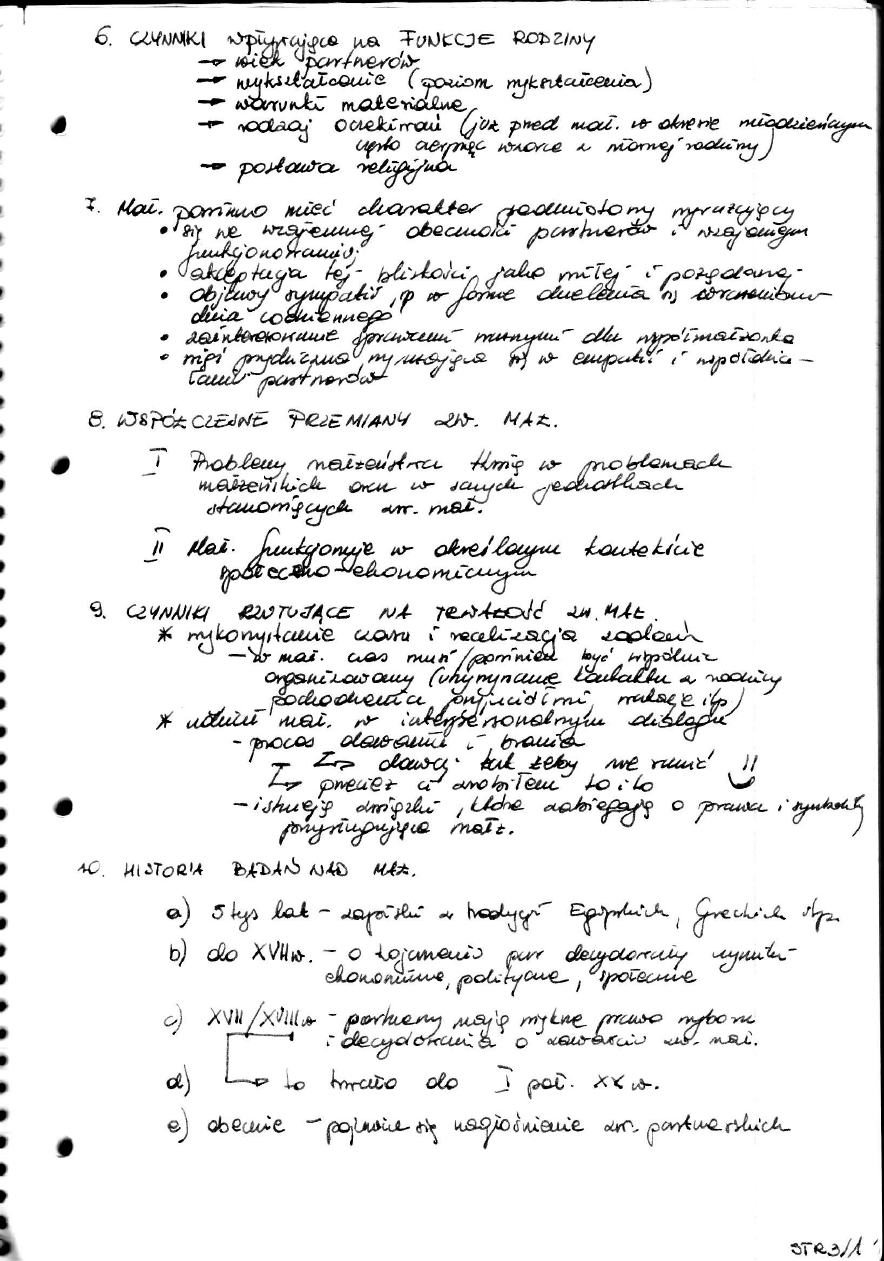 6. CZYNNIKI wpływające na FUNKCJE RODZINY
→ wiek partnerów
→ wykształcenie (poziom wykształcenia)
→ warunki materialne
→ rodzaj oczekiwań (już przed mał. w okresie młodzieńczym
często czerpiąc wzorce z własnej rodziny)
→ postawa religijna
7. Mał. powinno mieć charakter podmiotowy wyrażający
• się we wzajemnej obecności partnerów i wzajemnym
funkcjonowaniu;
• akceptacja tej bliskości jako miłej i pożądanej
• objawy sympatii, w formie dzielenia się
dnia codziennego
• zainteresowanie sprawami ważnymi dla współmałżonka
• więź psychiczna wyrażająca się w empatii i współdzia-
łaniu partnerów
8. WSPÓŁCZESNE PRZEMIANY ZW. MAŁ.
I Problemy małżeństwa tkwią w problemach
małżeńskich oraz w samych jednostkach
stanowiących zw. mał.
II Mał. funkcjonuje w określonym kontekście
społeczno-ekonomicznym
9. CZYNNIKI RZUTUJĄCE NA TRWAŁOŚĆ ZW. MAŁ.
* wykorzystanie czasu i realizacja zadań
- w mał. czas musi/powinien być wspólnie
organizowany (utrzymanie kontaktu z rodziny
pochodzenia, przyjaciółmi, wakacje itp)
* udział mał. w interpersonalnym dialogu
- proces dawania i brania
↳ dawaj tak żeby nie ranić !!
↳ przecież ci zrobiłem to i to
- istnieją związki, które zabiegają o prawa i symbole
przysługujące małż.
10. HISTORIA BADAŃ NAD MAŁ.
a) 5 tys lat - zapiski z tradycji Egipskich, Greckich itp.
b) do XVII w. - o kojarzeniu par decydowały czynniki
ekonomiczne, polityczne, społeczne
c) XVII/XVIII w - partnerzy mają prawo wyboru
i decydowania o zawarciu zw. mał.
d) ↳ to trwało do I poł. XX w.
e) obecnie - pojawia się nagłośnienie zw. partnerskich
STR 3/1